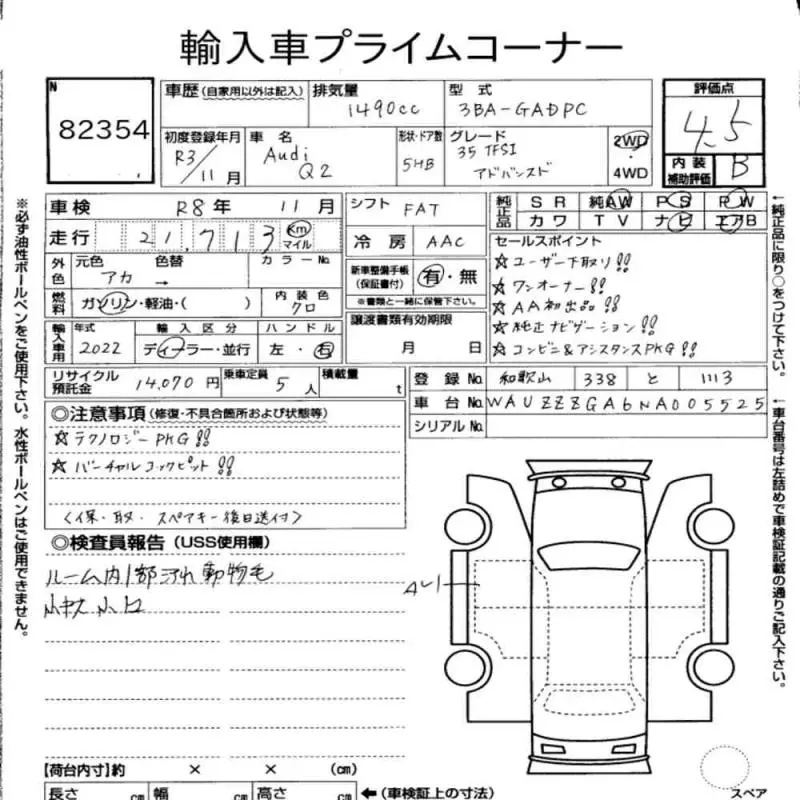 輸入車プライムコーナー
N
82354
車歴(自家用以外は記入)
排気量
1490cc
型式
3BA-GADPC
評価点
4.5
初度登録年月
R3/11月
車名
Audi
Q2
形状・ドア数
5HB
グレード
35 TFSI
アドバンスド
2WD
・
4WD
内装
補助評価
B
車検
R8年 11月
シフト
FAT
純正品
SR 純AW PS PW
カワ TV ナビ エアB
走行
21,713
Km
マイル
冷房
AAC
セールスポイント
☆ユーザー下取り!!
☆ワンオーナー!!
☆AA初出品!!
☆純正ナビゲーション!!
☆コンビニ&アシスタンスPKG!!
外色
元色 色替 カラーNo.
アカ →
新車整備手帳
(保証書付)
有・無
※書類と一緒に保管下さい。
燃料
ガソリン・軽油・( )
内装色
クロ
譲渡書類有効期限
月 日
輸入車用
年式
2022
輸入区分
ディーラー・並行
ハンドル
左・右
リサイクル
預託金
14,070円
乗車定員
5人
積載量
t
登録No.
和歌山 338 と 1113
車台No.
WAUZZZGA6NA005525
シリアルNo.
◎注意事項(修復・不具合箇所および状態等)
☆テクノロジーPKG!!
☆バーチャルコックピット!!
<保・取・スペアキー後日送付>
◎検査員報告(USS使用欄)
ルーム内1部汚れ動物毛
A1
【荷台内寸】約 × × (cm)
長さ cm 幅 cm 高さ cm
←(車検証上の寸法)
スペア
※必ず油性ボールペンをご使用下さい。水性ボールペンはご使用できません。
←純正品に限り○をつけて下さい。
←車台番号は左詰めで車検証記載の通りご記入下さい。